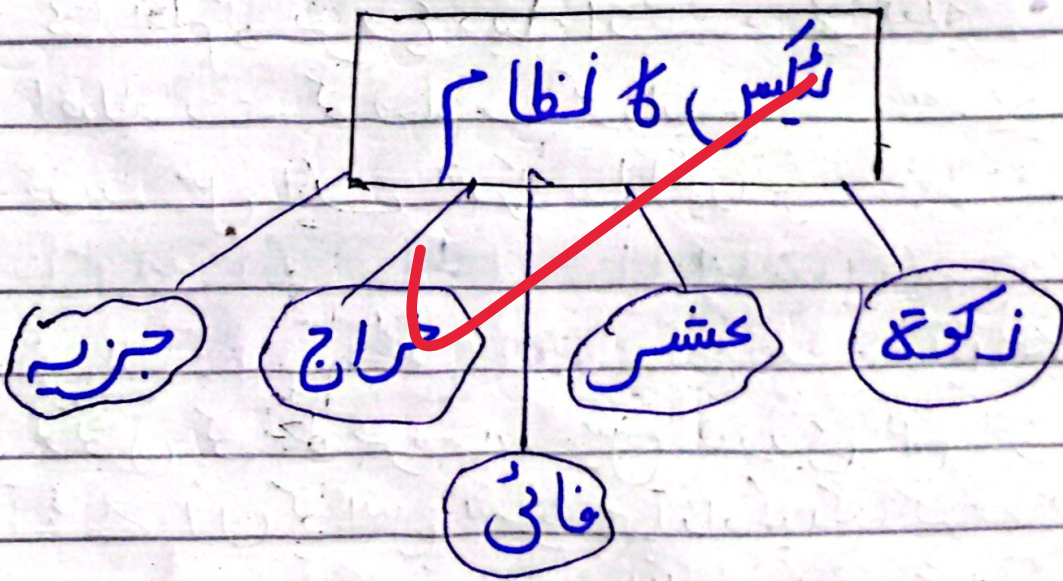 ٹیکس کا نظام
زکوۃ
عشر
خراج
جزیہ
فائی